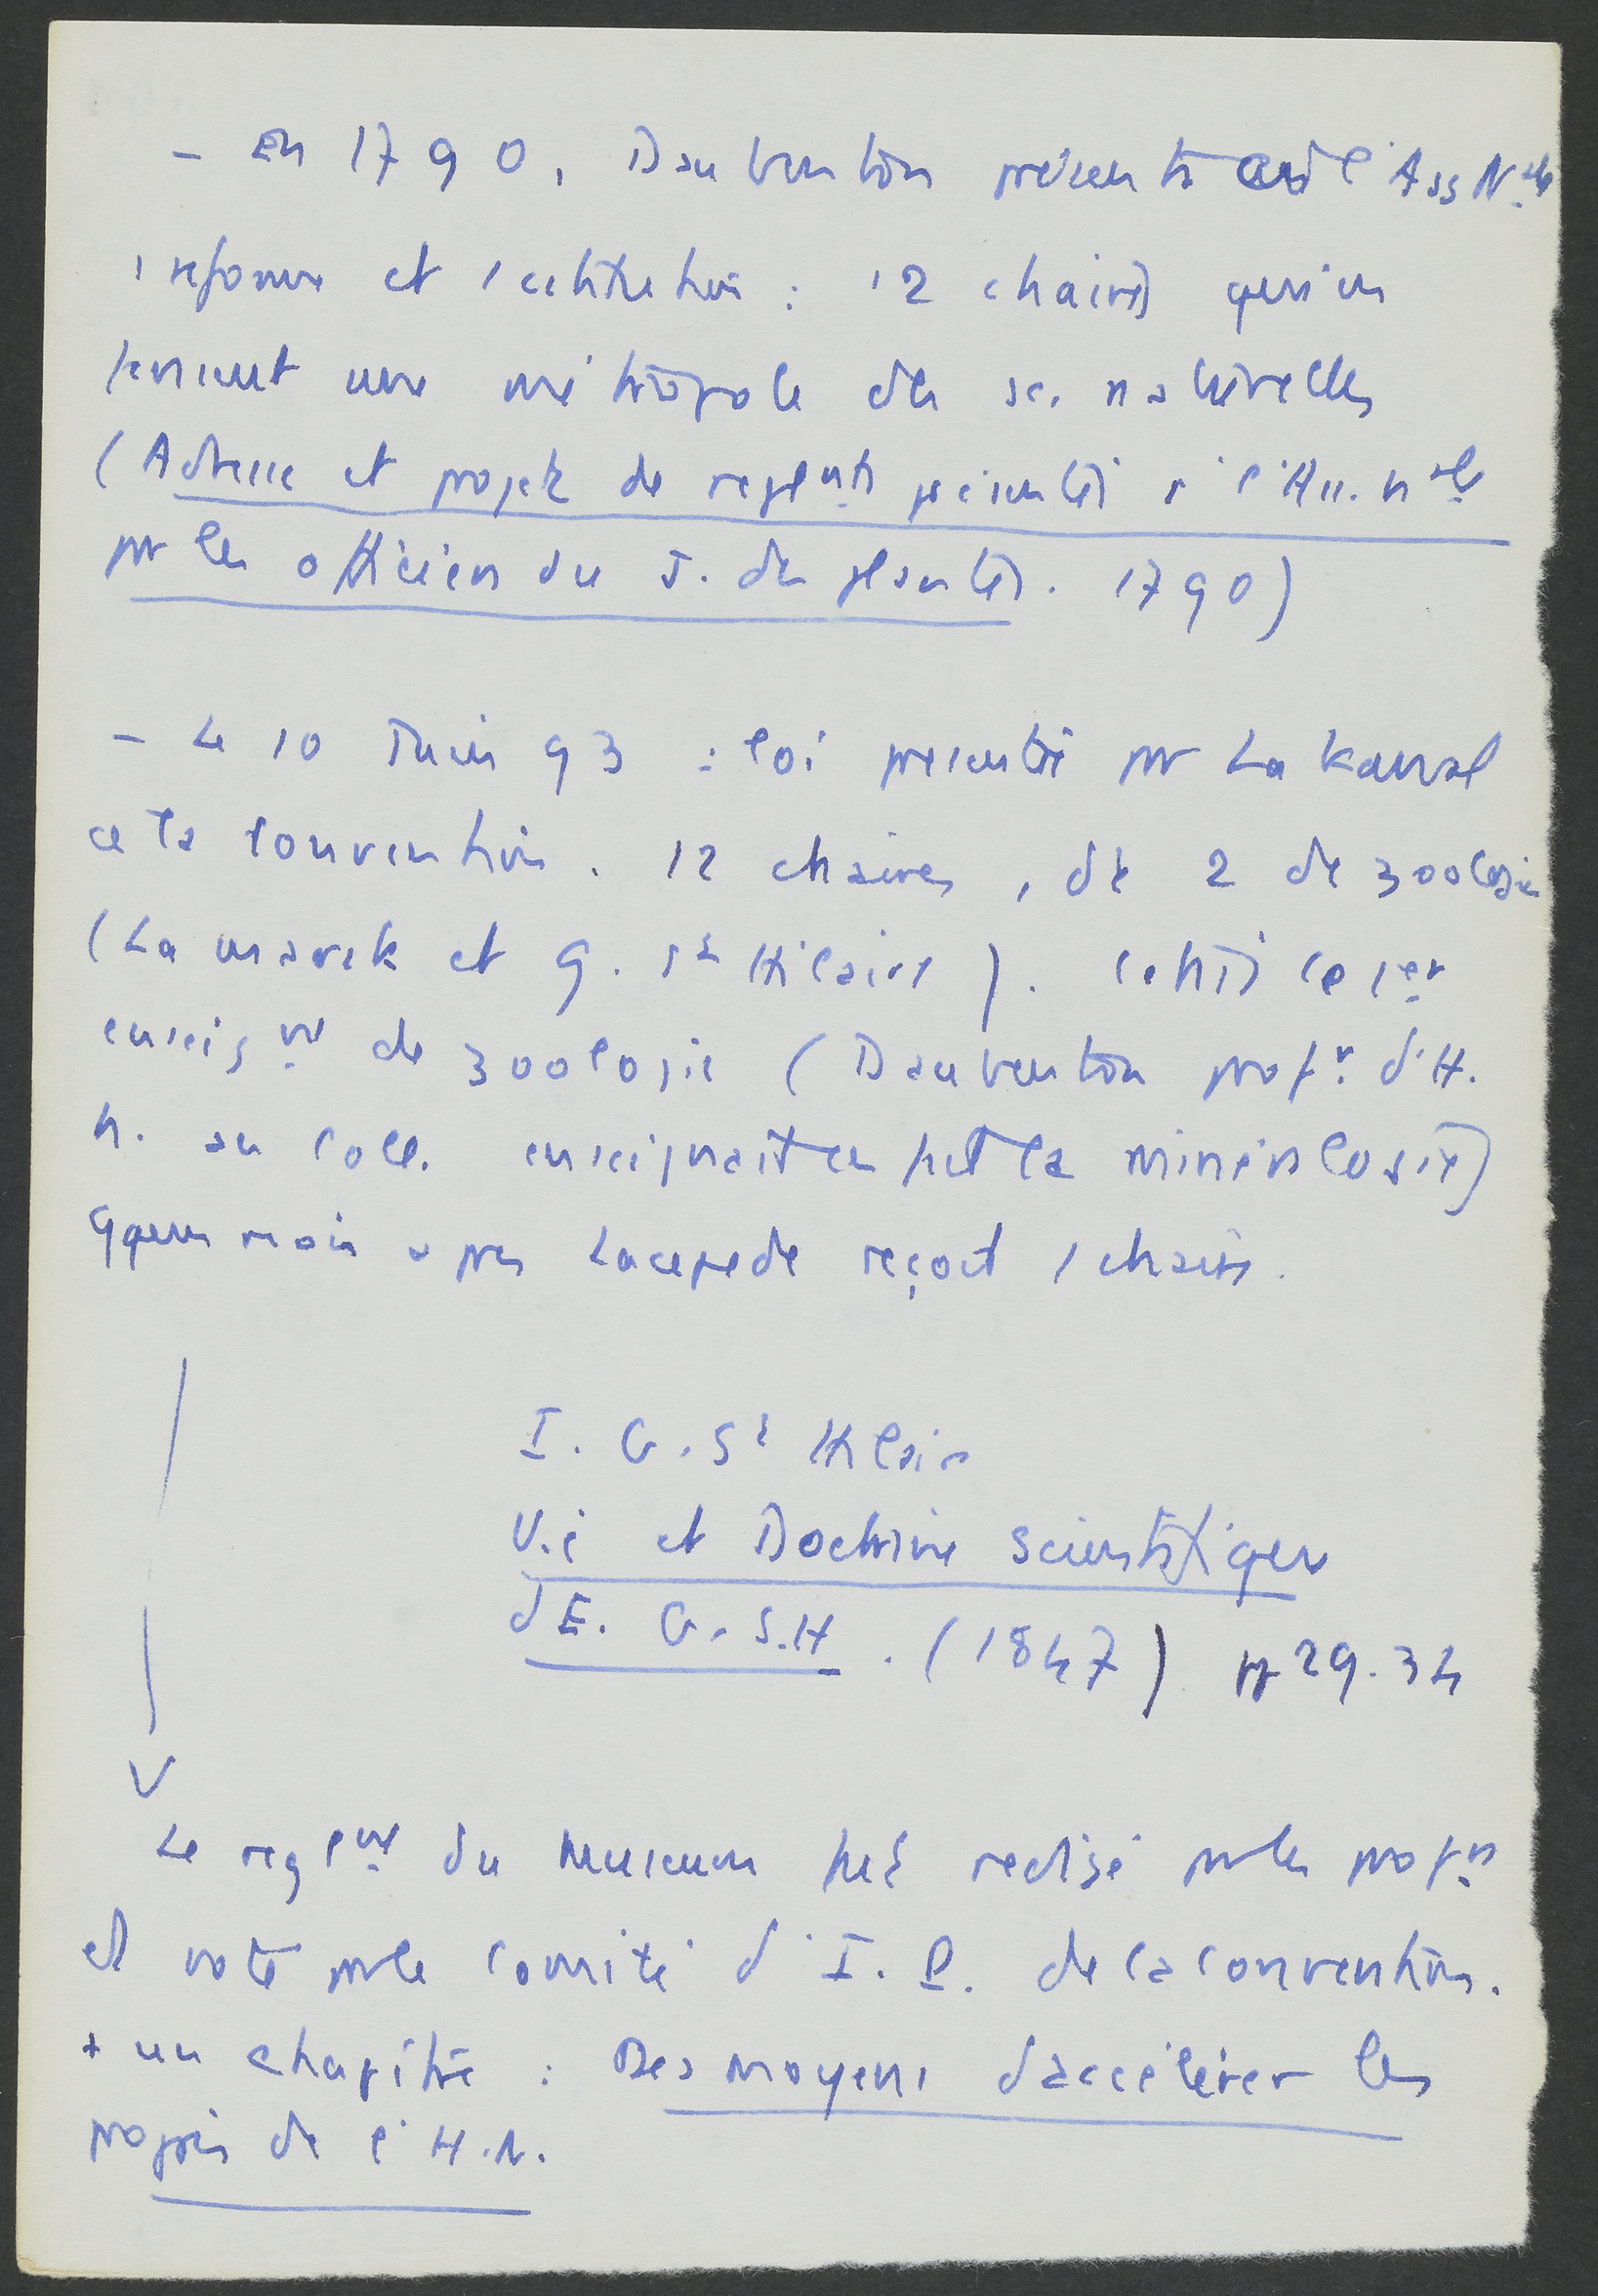 - En 1790, Daubenton présente à l'Ass Nale
1 réforme et 1 institution : 12 chaires qui en
feraient une métropole des sc. naturelles
(Adresse et projets de reglnts présentés à l'Ass. nale
pr les officiers du J. des plantes. 1790)
- Le 10 Juin 93 : loi présentée pr Lakanal
à la Convention. 12 chaires, dt 2 de zoologie
(Lamarck et G. St Hilaire). C'était le 1er
enseigmt de zoologie (Daubenton profr d'H.
N. au Coll. enseignait en fait la minéralogie)
Qques mois après Lacepede reçoit 1 chaire.
I. G. St Hilaire
Vie et Doctrine scientifique
d'E. G. S.H. (1847) pp 29.34
Le reglmt du Museum fut redigé pr les profrs
et voté pr le Comité d'I. P. de la Convention.
+ un chapitre : Des moyens d'accélérer les
progrès de l'H.N.